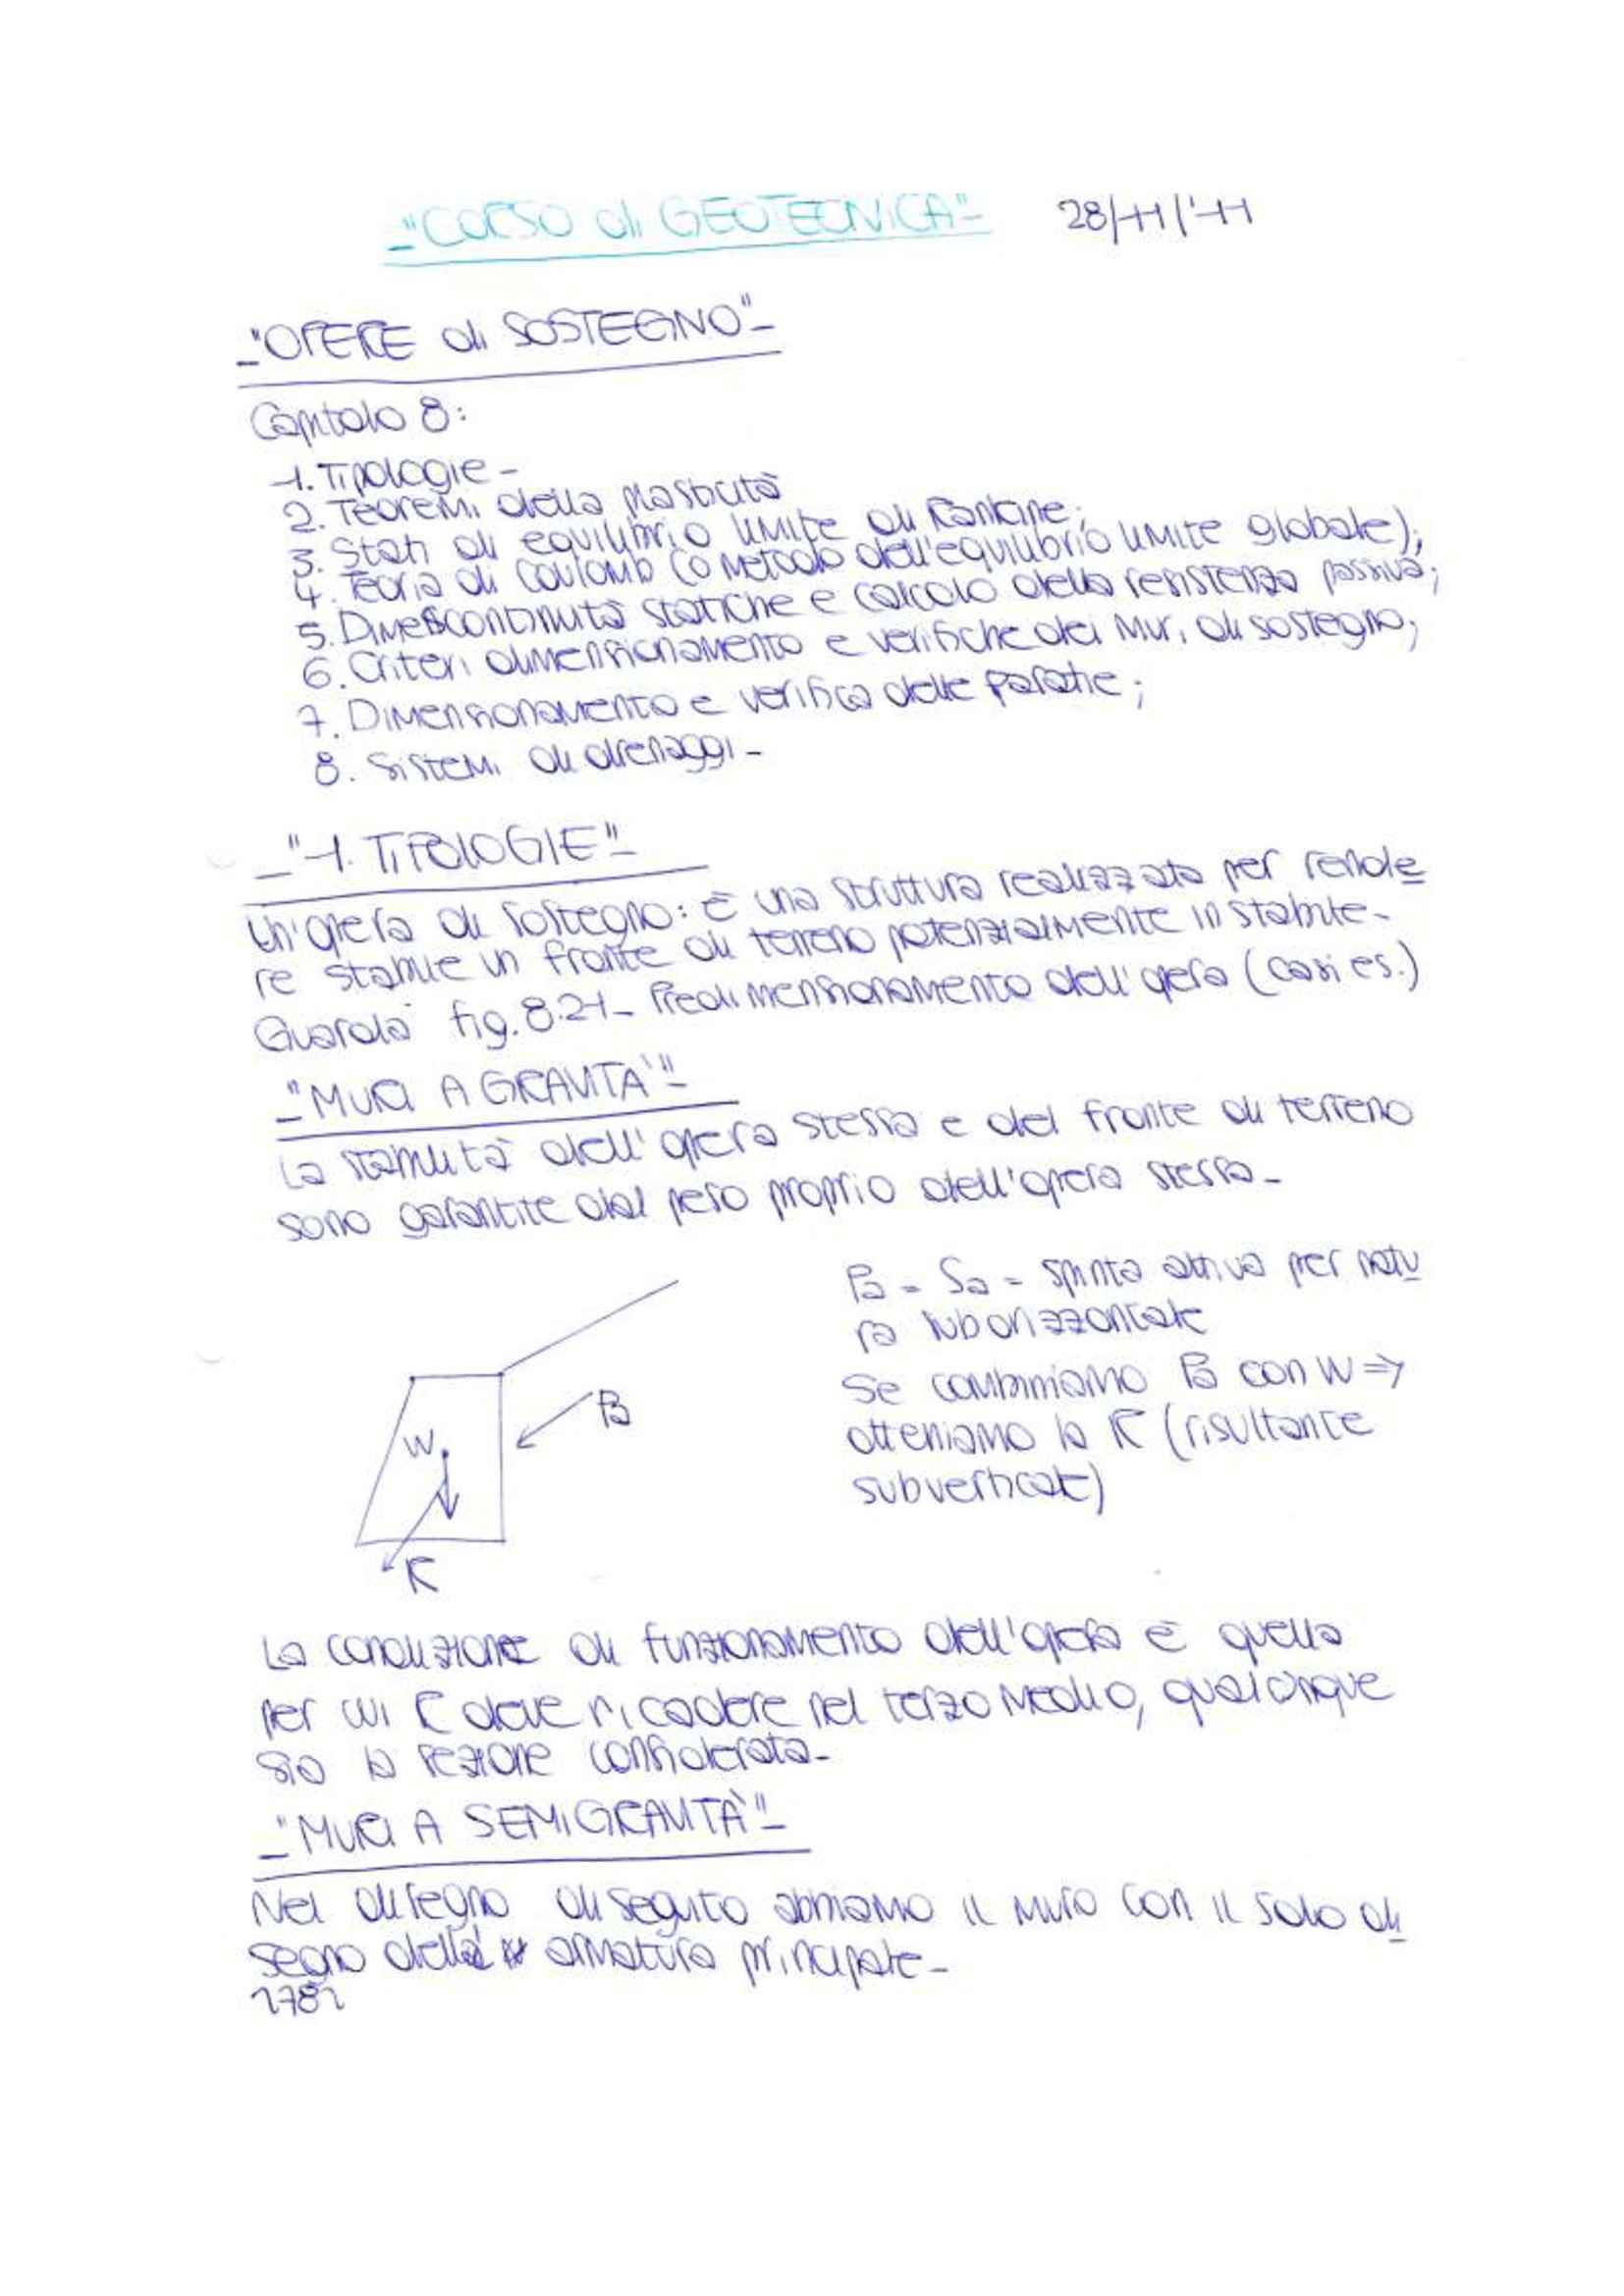 -"CORSO di GEOTECNICA"- 28/11/'11
-"OPERE di SOSTEGNO"-
Capitolo 8:
1. Tipologie-
2. Teoremi della plasticità
3. Stati di equilibrio limite di Rankine;
4. Teoria di Coulomb (o Metodo dell'equilibrio limite globale);
5. Discontinuità statiche e calcolo della resistenza passiva;
6. Criteri dimensionamento e verifiche dei Muri di sostegno;
7. Dimensionamento e verifica delle paratie;
8. Sistemi di drenaggi-
-"1. TIPOLOGIE"-
Un'opera di sostegno: è una struttura realizzata per rende
re stabile un fronte di terreno potenzialmente instabile-
Guarda fig. 8.21- Predimensionamento dell'opera (casi es.)
-"MURI A GRAVITA'"-
La stabilità dell'opera stessa e del fronte di terreno
sono garantite dal peso proprio dell'opera stessa-
Pa = Sa = spinta attiva per natu
ra suborizzontale
Se combiniamo Pa con W =>
otteniamo la R (risultante
subverticale)
Pa
W
R
La condizione di funzionamento dell'opera è quella
per cui R deve ricadere nel terzo Medio, qualunque
sia la sezione considerata-
-"MURI A SEMIGRAVITÀ"-
Nel disegno di seguito abbiamo il muro con il solo di
segno della armatura principale-
1782